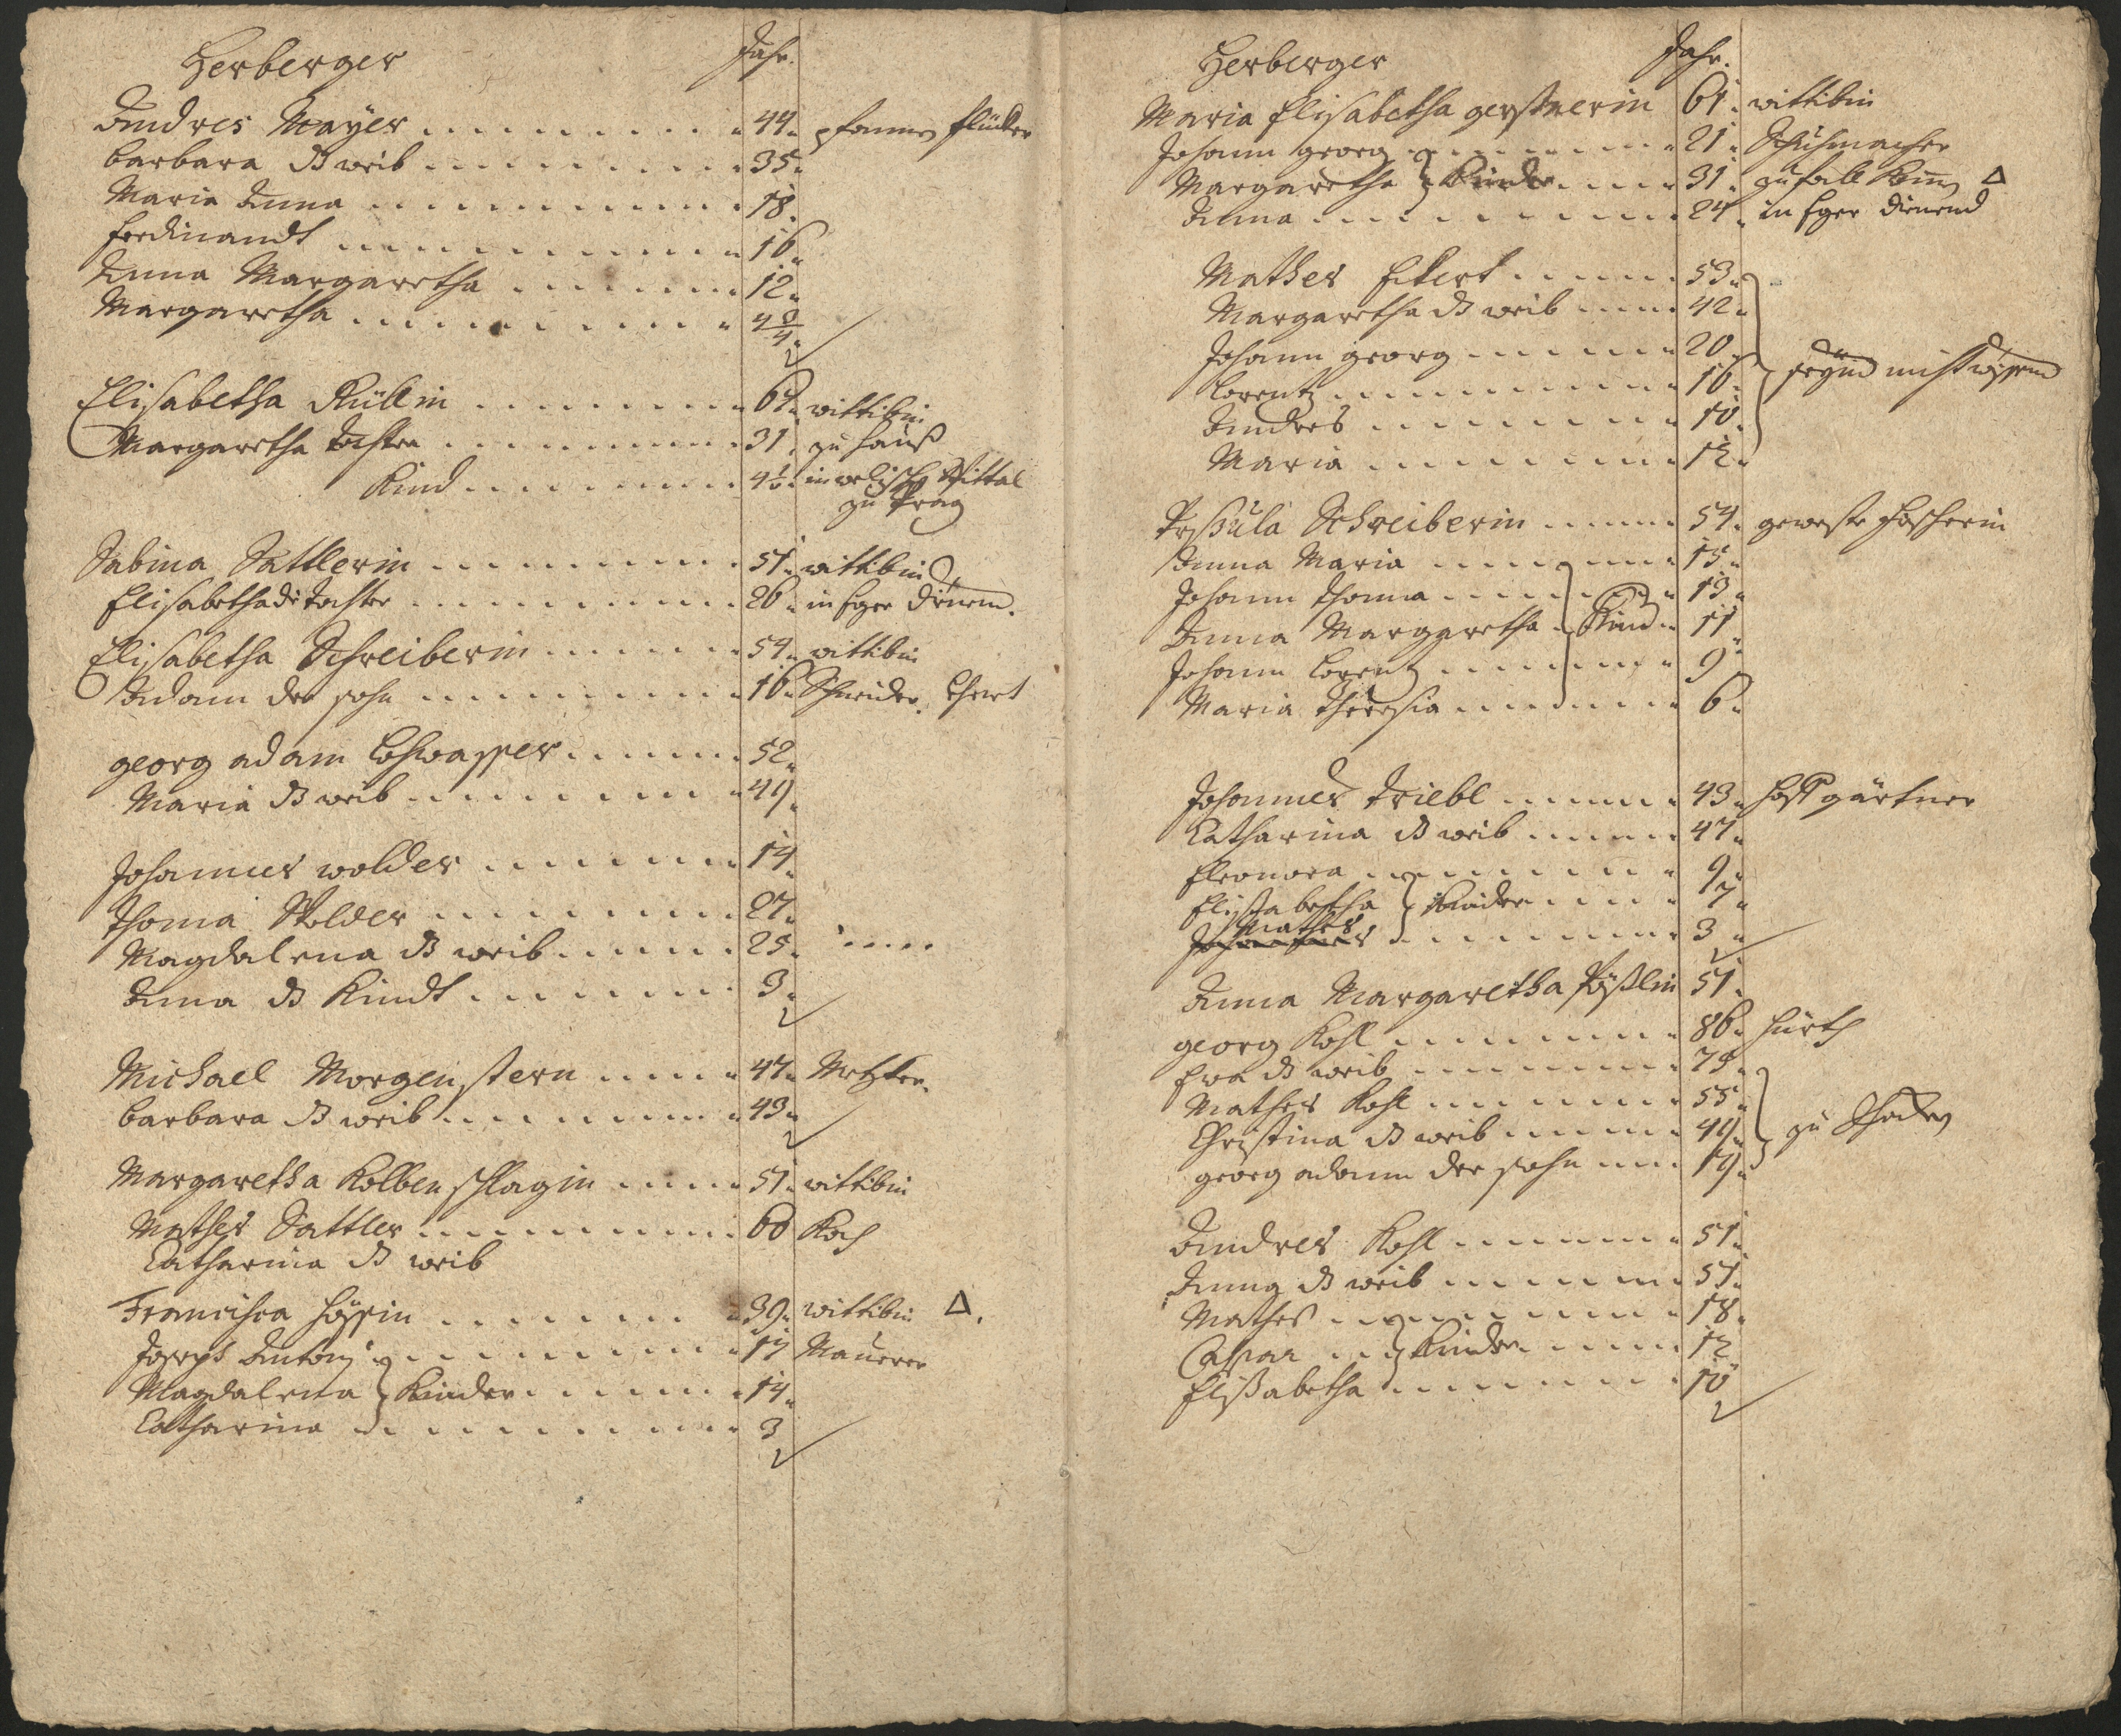 Herberger
Jahr.
Andres Mayer 44 pfannen flücker
Barbara ds weib 35
Maria Anna 18
Ferdinandt 16
Anna Margaretha 12
Margaretha 4
Elisabetha wittibin
Margaretha tochter 31 zu hauß
Kind 4½ in welisch Spittal
zu Prag
Sabina Sattlerin 51 wittibin
Elisabetha die tochter 26 in Eger dienend.
Elisabetha Schreiberin 54 wittibin
Adam der sohn 16 Schneider
georg adam Lohwasser 52
Maria ds weib 49
Johannes wolder 14
Thoma 27
Magdalena ds weib 25
Anna ds Kindt 3
Michael Morgenstern 47 Metzker
Barbara ds weib 43
Margaretha Kolbenschlagin 51 wittibin
Mathes Sattler 60 Koch
Catharina ds weib
Francisca 39 wittibin Δ.
Joseph Antoni 17 Maurer
Magdalena } Kinder 14
Catharina 3
Herberger
Jahr.
Maria Elisabetha gerstnerin 61 wittibin
Johann georg 21 Schuhmacher
Margaretha } Kinder 31 Δ
Anna 24 in Eger dienend
Mathes Ekert 53
Margaretha ds weib 42
Johann georg 20
Lorentz 16 seynd wissend
Andres 10
Maria 12
Schreiberin 54 geweste
Anna Maria 15
Johann Thoma 13
Anna Margaretha } Kind 11
Johann Lorentz 9
Maria Theresia 6
Johannes Triebl 43 hoff gärtner
Catharina ds weib 47
Eleonora 9
Elisabetha } Kinder 7
Mathes
Johannes 3
Anna Margaretha 51
georg Kohl 86 hürth
Eva ds weib 75
Mathes Kohl 55
Christina ds weib 49 zu
georg adam der sohn 19
Andres Kohl 51
Anna ds weib 51
Mathes 18
Caspar } Kinder 12
Elisabetha 10